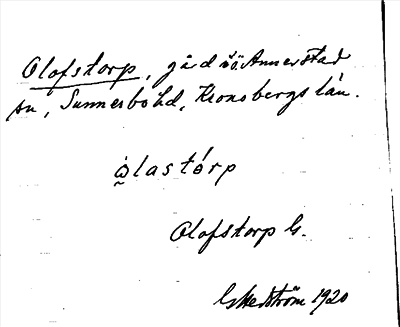 Olofstorp, gård i Ö. Annerstad
sn, Sunnerbo hd, Kronobergs län.
òlastórp
Olofstorp G.
Ekedström 1920